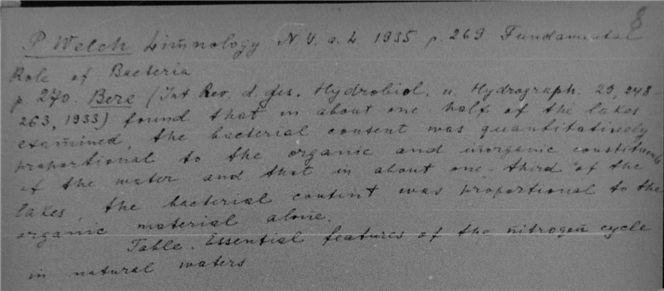 8
P Welch Limnology N Y. a. L 1935 p. 269 Fundamental
Role of Bacteria
p. 270. Bere (Int Rev. d ges. Hydrobiol. u. Hydrograph. 29, 248-
263, 1933) found that in about one half of the lakes
examined, the bacterial content was quantitatively
proportional to the organic and inorganic constituents
of the water and that in about one-third of the
lakes, the bacterial content was proportional to the
organic material alone.
Table. Essential features of the nitrogen cycle
in natural waters